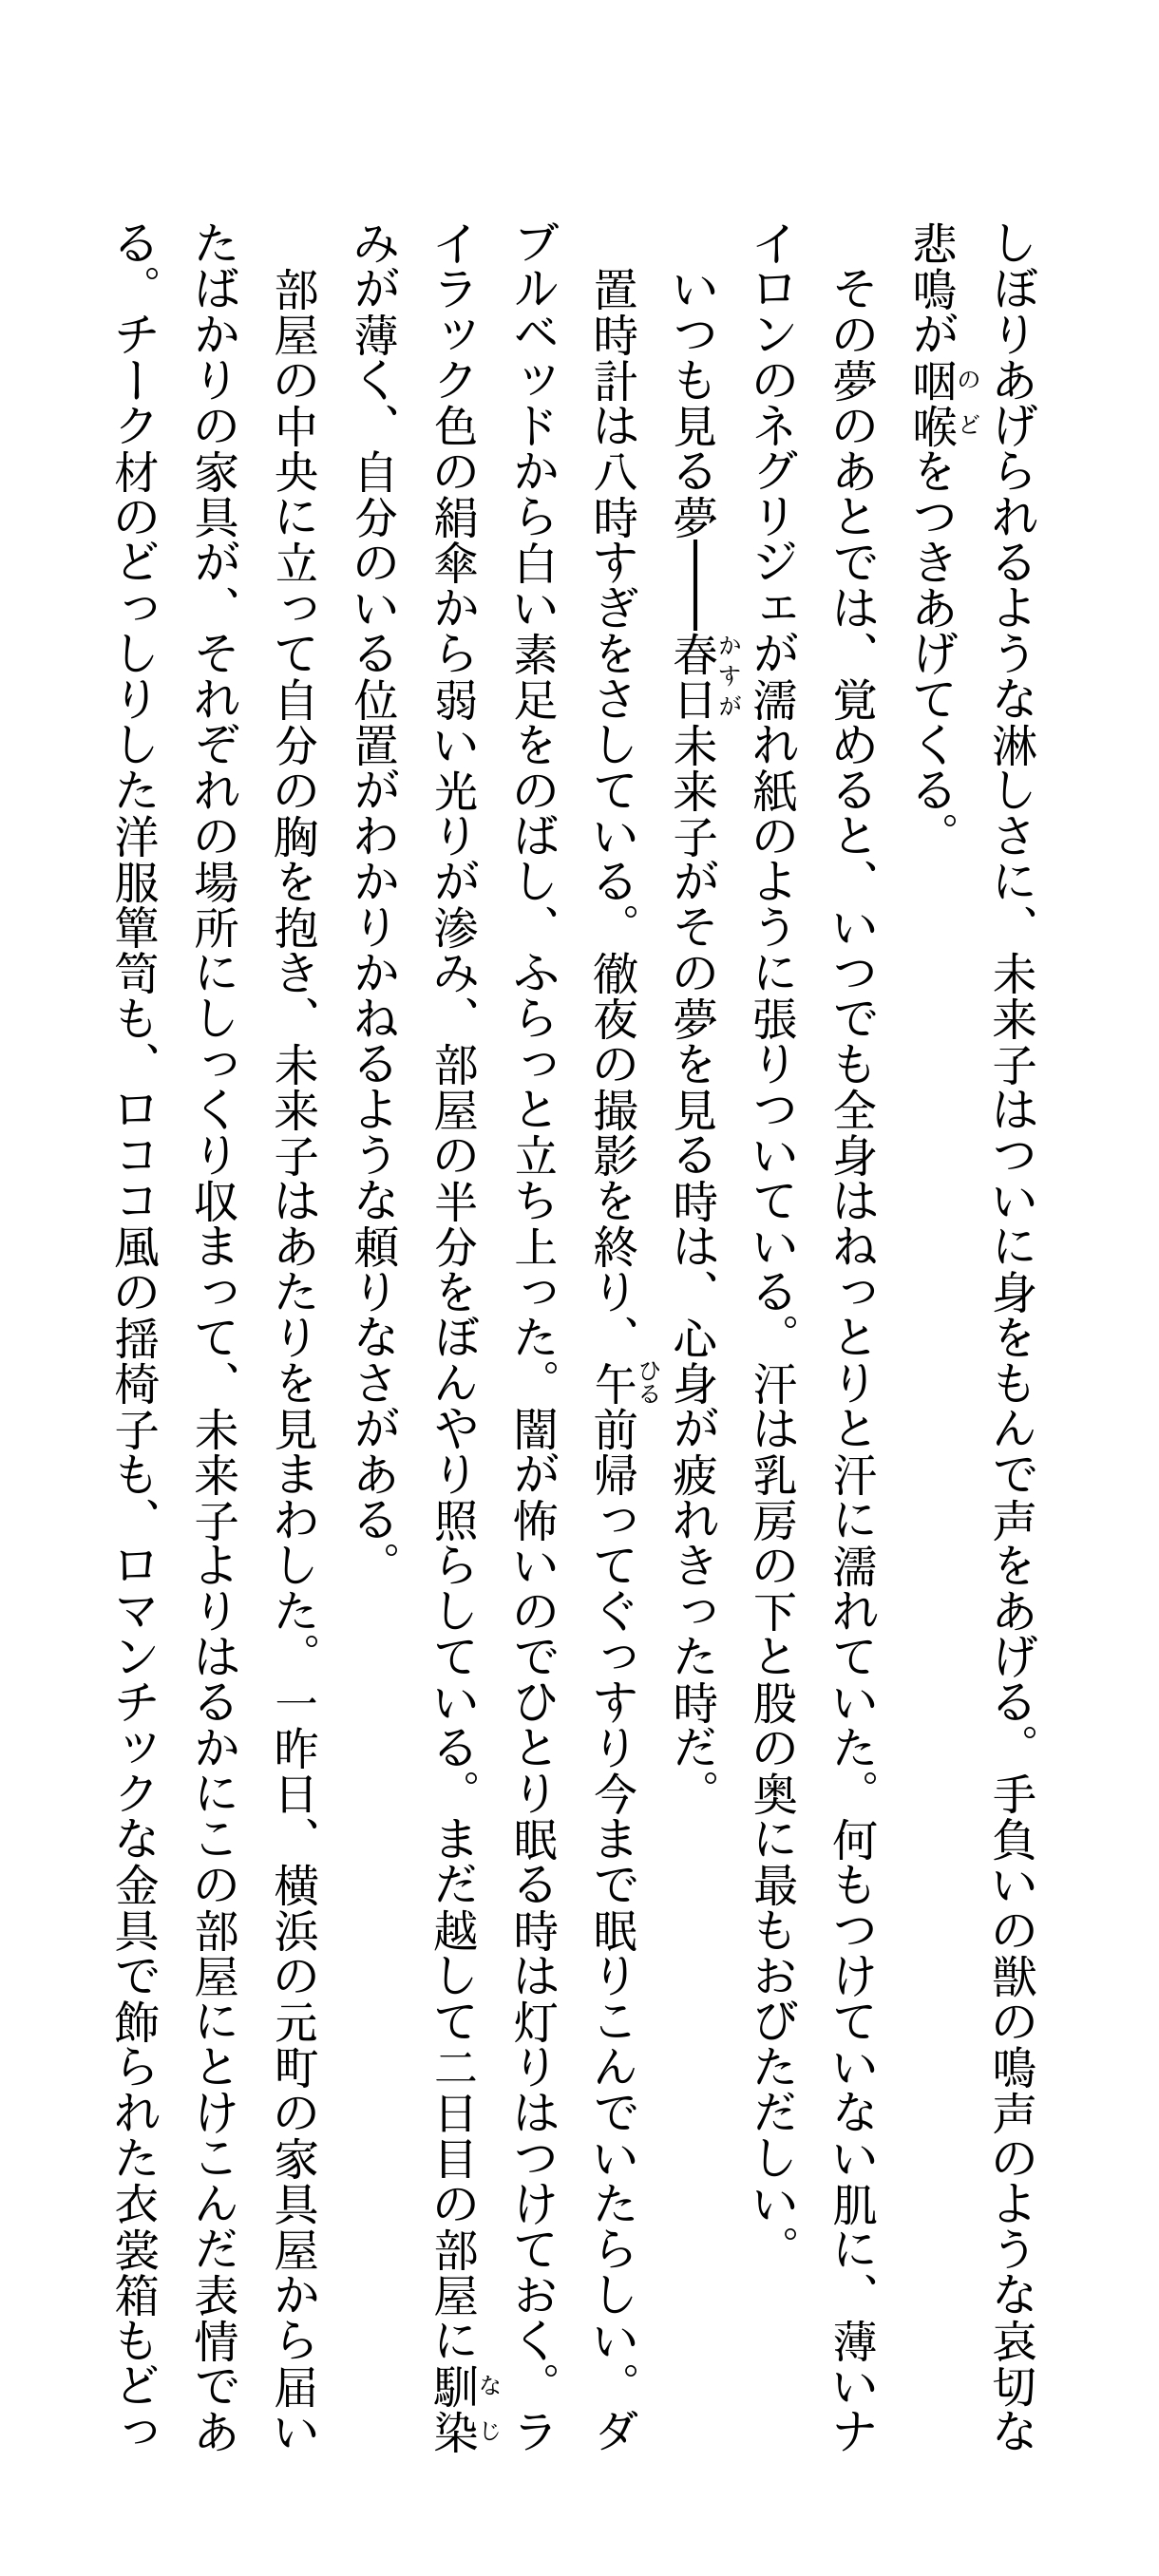 しぼりあげられるような淋しさに、未来子はついに身をもんで声をあげる。手負いの獣の鳴声のような哀切な
悲鳴が咽喉をつきあげてくる。
　その夢のあとでは、覚めると、いつでも全身はねっとりと汗に濡れていた。何もつけていない肌に、薄いナ
イロンのネグリジェが濡れ紙のように張りついている。汗は乳房の下と股の奥に最もおびただしい。
　いつも見る夢――春日未来子がその夢を見る時は、心身が疲れきった時だ。
　置時計は八時すぎをさしている。徹夜の撮影を終り、午前帰ってぐっすり今まで眠りこんでいたらしい。ダ
ブルベッドから白い素足をのばし、ふらっと立ち上った。闇が怖いのでひとり眠る時は灯りはつけておく。ラ
イラック色の絹傘から弱い光りが渗み、部屋の半分をぼんやり照らしている。まだ越して二日目の部屋に馴染
みが薄く、自分のいる位置がわかりかねるような頼りなさがある。
　部屋の中央に立って自分の胸を抱き、未来子はあたりを見まわした。一昨日、横浜の元町の家具屋から届い
たばかりの家具が、それぞれの場所にしっくり収まって、未来子よりはるかにこの部屋にとけこんだ表情であ
る。チーク材のどっしりした洋服箪笥も、ロココ風の揺椅子も、ロマンチックな金具で飾られた衣裳箱もどっ